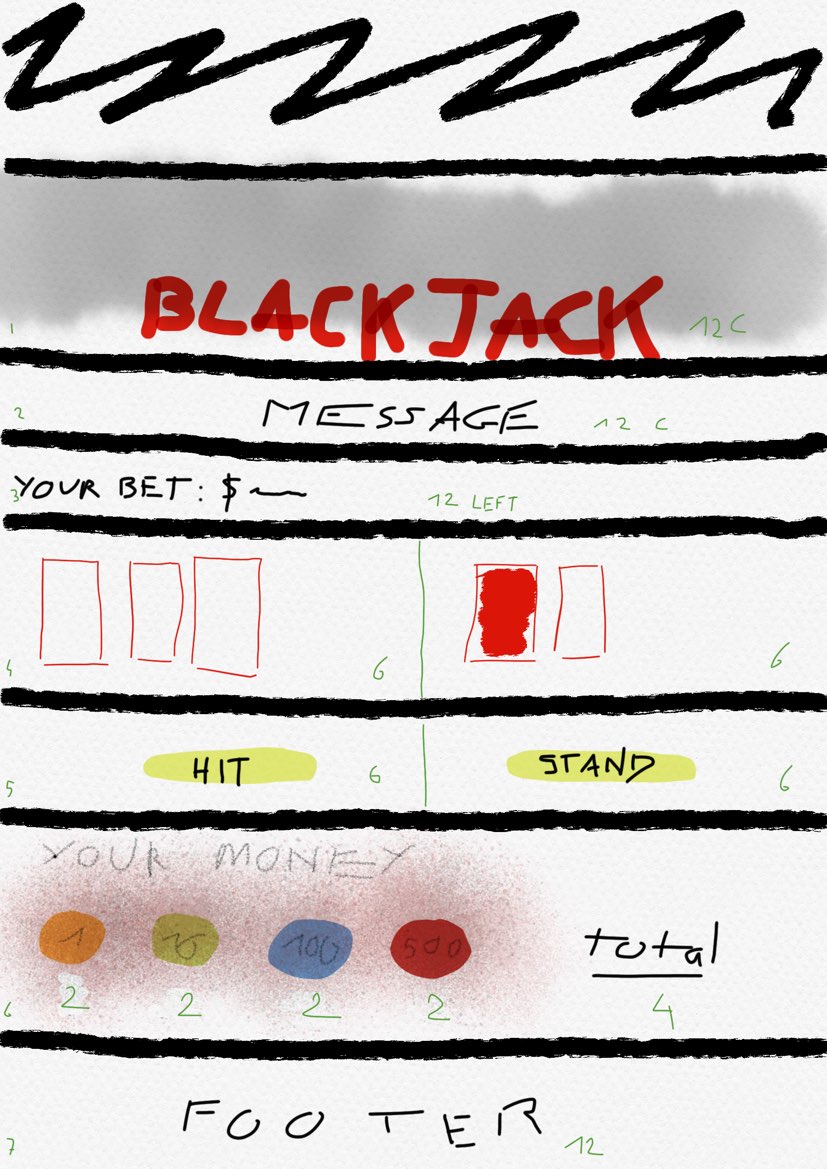 BLACKJACK
1 12 C
MESSAGE
2 12 C
3 YOUR BET: $
12 LEFT
4 6 6
HIT STAND
5 6 6
YOUR MONEY
1 100 500 total
6 2 2 2 2 4
FOOTER
7 12